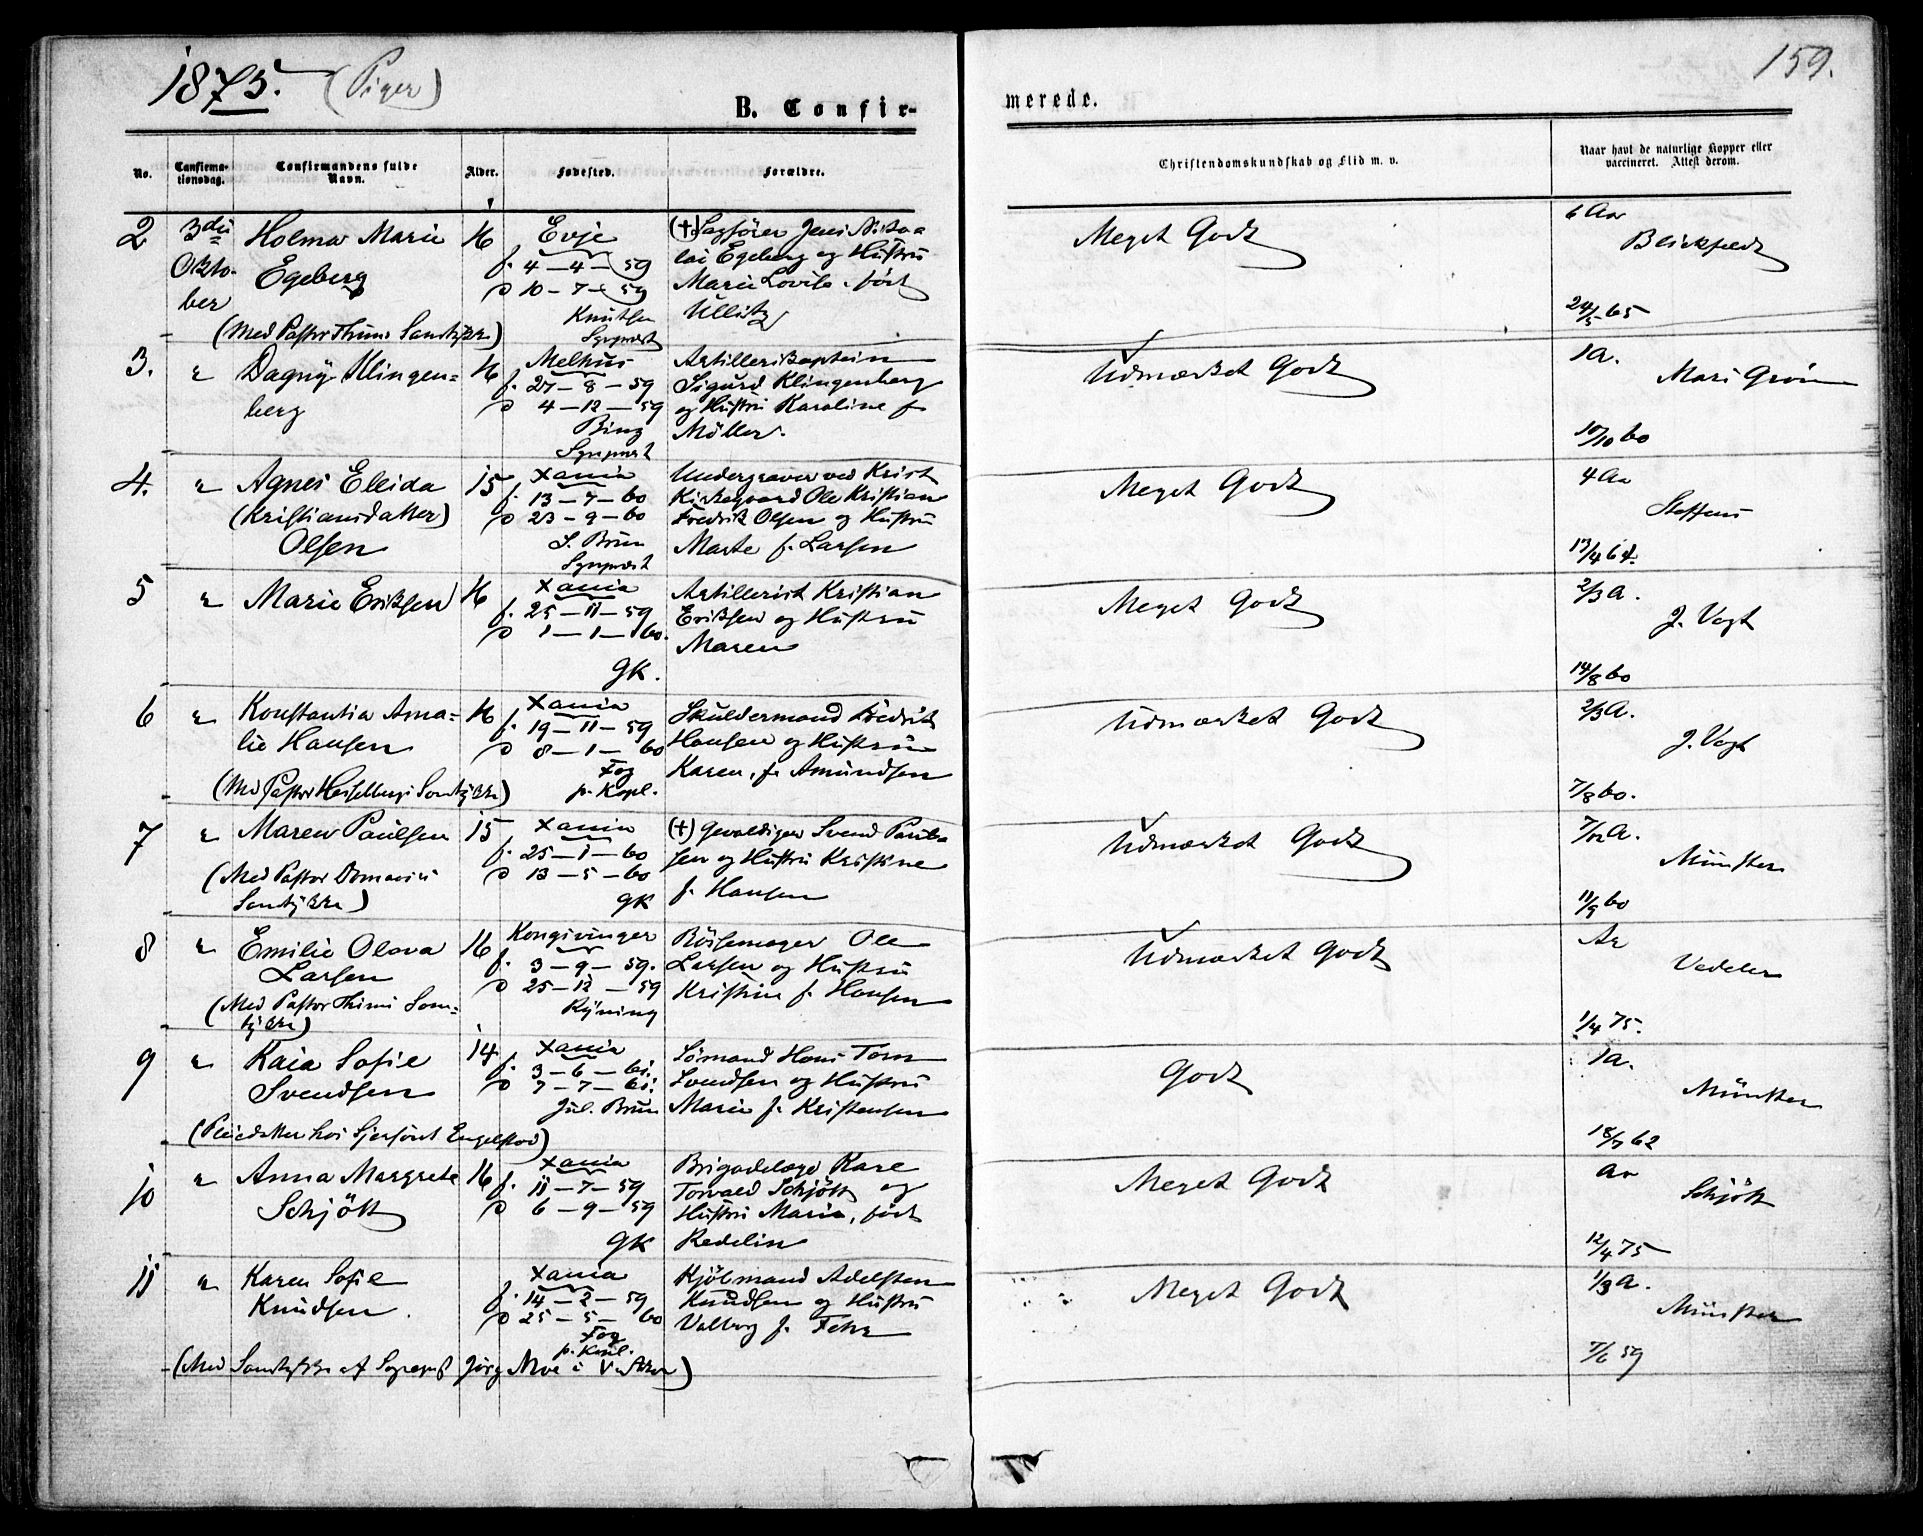 1875. (Piger)
159.
B. Confir-
merede.
No.
Confirma-
tionsdag.
Confirmandens fulde
Navn.
Alder.
Fødested.
Forældre.
Christendomskundskab og Flid m. v.
Naar havt de naturlige Kopper eller
vaccineret. Attest derom.
2 3die Okto-
ber
Holma Marie
Egeberg
16
Evje
f. 4-4-59
d 10-7-59
Knutsen
Sgnpræst
(†) Sagfører Jens Nikoa
lai Egeberg og Hustru
Marie Lovise født
Ullitz
(Med Pastor Thims Samtykke)
Meget Godt
6 Aar
Blickfeldt
24/5 65
3. " Dagny Klingen=
berg
16
Melhus
f. 27-8-59
d 4-12-59
Bing
Sgnpræst
Artillerikaptein
Sigurd Klingenberg
og Hustru Karoline f
Möller.
Udmærket Godt
1 a.
Mari Grön
10/10 60
4. " Agnes Elida
(Kristiansdatter)
Olsen
15
Xania
f. 13-7-60
d 23-9-60
S. Brun
Sgnpræst
Undergraver ved Krist
Kirkegaard Ole Kristian
Fredrik Olsen og Hustru
Marte f. Larsen
Meget Godt
4 Aa
Steffens
13/4 64.
5 " Marie Eriksen
16
Xania
f. 25-11-59
d 1-1-60.
GK.
Artillerist Kristian
Eriksen og Hustru
Maren
Meget Godt
2/3 a.
J. Vogt
14/8 60
6 " Konstantia Ama=
lie Hansen
16
Xania
f. 19-11-59
d 8-1-60
Fog
p. Kapl.
Skuldermand Fredrik
Hansen og Hustru
Karen, f. Amundsen
(Med Pastor Hesselbergs Samtykke)
Udmærket Godt
2/3 A.
J. Vogt
7/8 60.
7 " Maren Paulsen
15
Xania
f. 25-1-60
d 13-5-60
GK
(†) Gevaldiger Svend Paul-
sen og Hustru Kristine
f. Hansen
(Med Pastor
Samtykke)
Udmærket Godt
7/12 A.
Münster
11/9 60
8 " Emilie Olava
Larsen
16
Kongsvinger
f. 3-9-59.
d 25-12-59
Ryning
Bössemager Ole
Larsen og Hustru
Kristine f. Hansen
(Med Pastor Thims Sam=
tykke)
Udmærket Godt
Ar
Vedeler
1/4 75.
9 " Kaia Sofie
Svendsen
14
Xania
f. 3-6-61.
d 7-7-61.
Jul. Brun
Sömand Hans Tom
Svendsen og Hustru
Marie f. Kristensen
(Pleiedatter hos Engelstad)
Godt
1 a.
Münster
18/7 62
10 " Anna Margrete
Schjött
16
Xania
f. 11-7-59
d 6-9-59
GK
Brigadelæge Kare
Torvald Schjött og
Hustru Marie, født
Redelin
Meget Godt
ar
Schjött
12/4 75
11 " Karen Sofie
Knudsen.
Xania
f. 14-2-59
d 25-5-60
Fog
p. Kapl.
Kjöbmand Adelsten
Knudsen og Hustru
Valborg f. Fehr
(Med Samtykke af Sognepræst Jörg. Moe i )
Meget Godt
1/3 a.
Münster
7/6 59